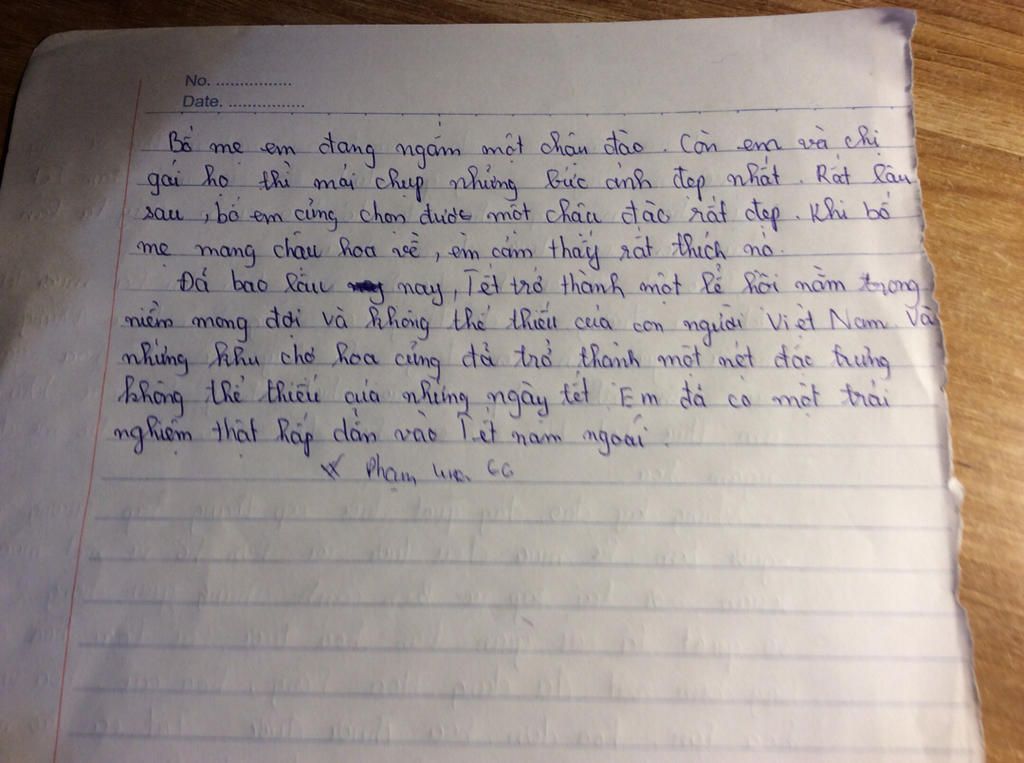 No. ................
Date. ................
Bố mẹ em đang ngắm một chậu đào. Còn em và chị
gái họ thì mải chụp những bức ảnh đẹp nhất. Rất lâu
sau, bố em cũng chọn được một chậu đào rất đẹp. Khi bố
mẹ mang chậu hoa về, em cảm thấy rất thích nó.
Đã bao lâu nay, Tết trở thành một lễ hội nằm trong
niềm mong đợi và không thể thiếu của con người Việt Nam. Và
những khu chợ hoa cũng đã trở thành một nét đặc trưng
không thể thiếu của những ngày tết. Em đã có một trải
nghiệm thật hấp dẫn vào Tết năm ngoái.
Phạm